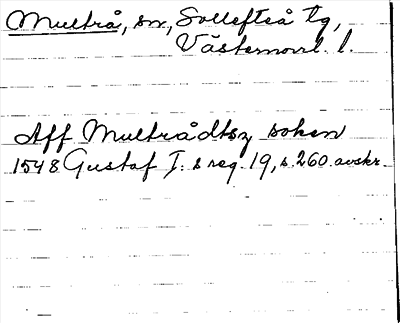 Multrå, sn, Sollefteå tg,
Västernorrl. l.
Aff Multrådtsz soken
1548 Gustaf I:s reg. 19, s. 260. avskr.